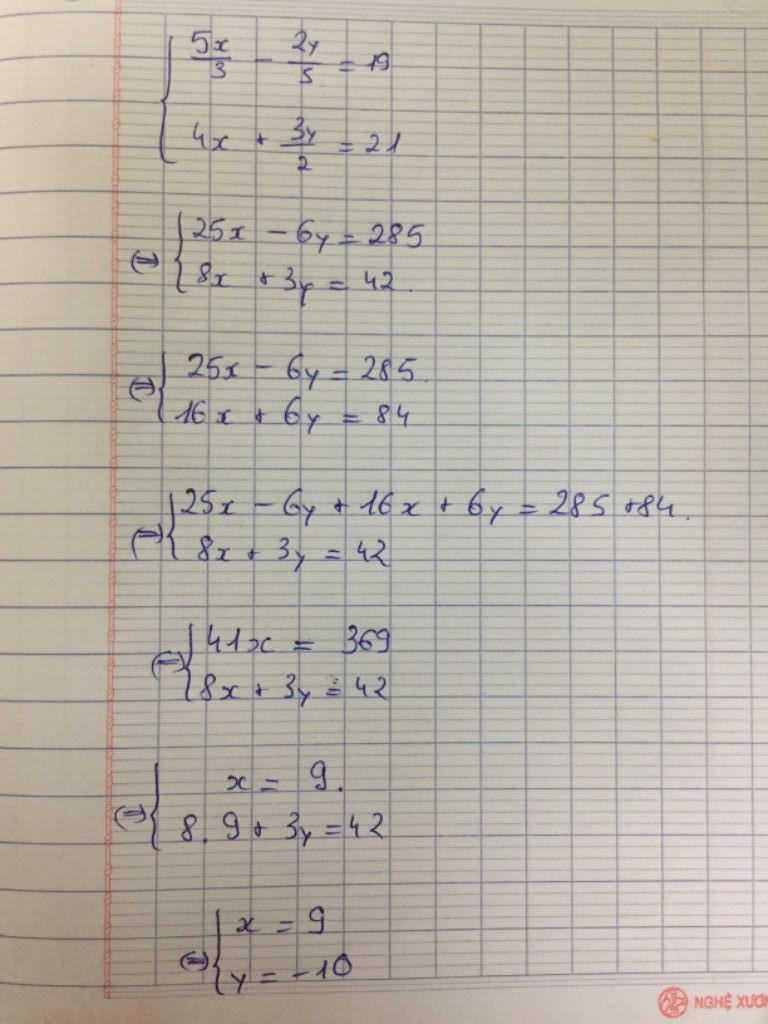 { 5x/3 - 2y/5 = 19
4x + 3y/2 = 21
⇔ { 25x - 6y = 285
8x + 3y = 42.
⇔ { 25x - 6y = 285.
16x + 6y = 84
⇔ { 25x - 6y + 16x + 6y = 285 + 84.
8x + 3y = 42
⇔ { 41x = 369
8x + 3y = 42
⇔ { x = 9.
8. 9 + 3y = 42
⇔ { x = 9
y = -10
NGHỆ XƯƠ